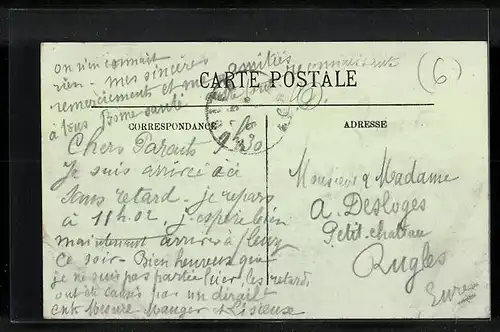 on n'en connait
rien. Mes sincères amitiés
remerciements et
à tous Bonne santé
CARTE POSTALE
(6)
CORRESPONDANCE
ADRESSE
9h30
Chers Parents
Je suis arrivée ici
sans retard - je repars
à 11h.02, j'espère bien
maintenant arriver à
ce soir - Bien heureux que
je ne suis pas partie hier, les retards
ont été causés par un
entre Mesure Mauger et Lisieuse
Monsieur & Madame
A. Desloges
Petit-chateau
Rugles
Eure